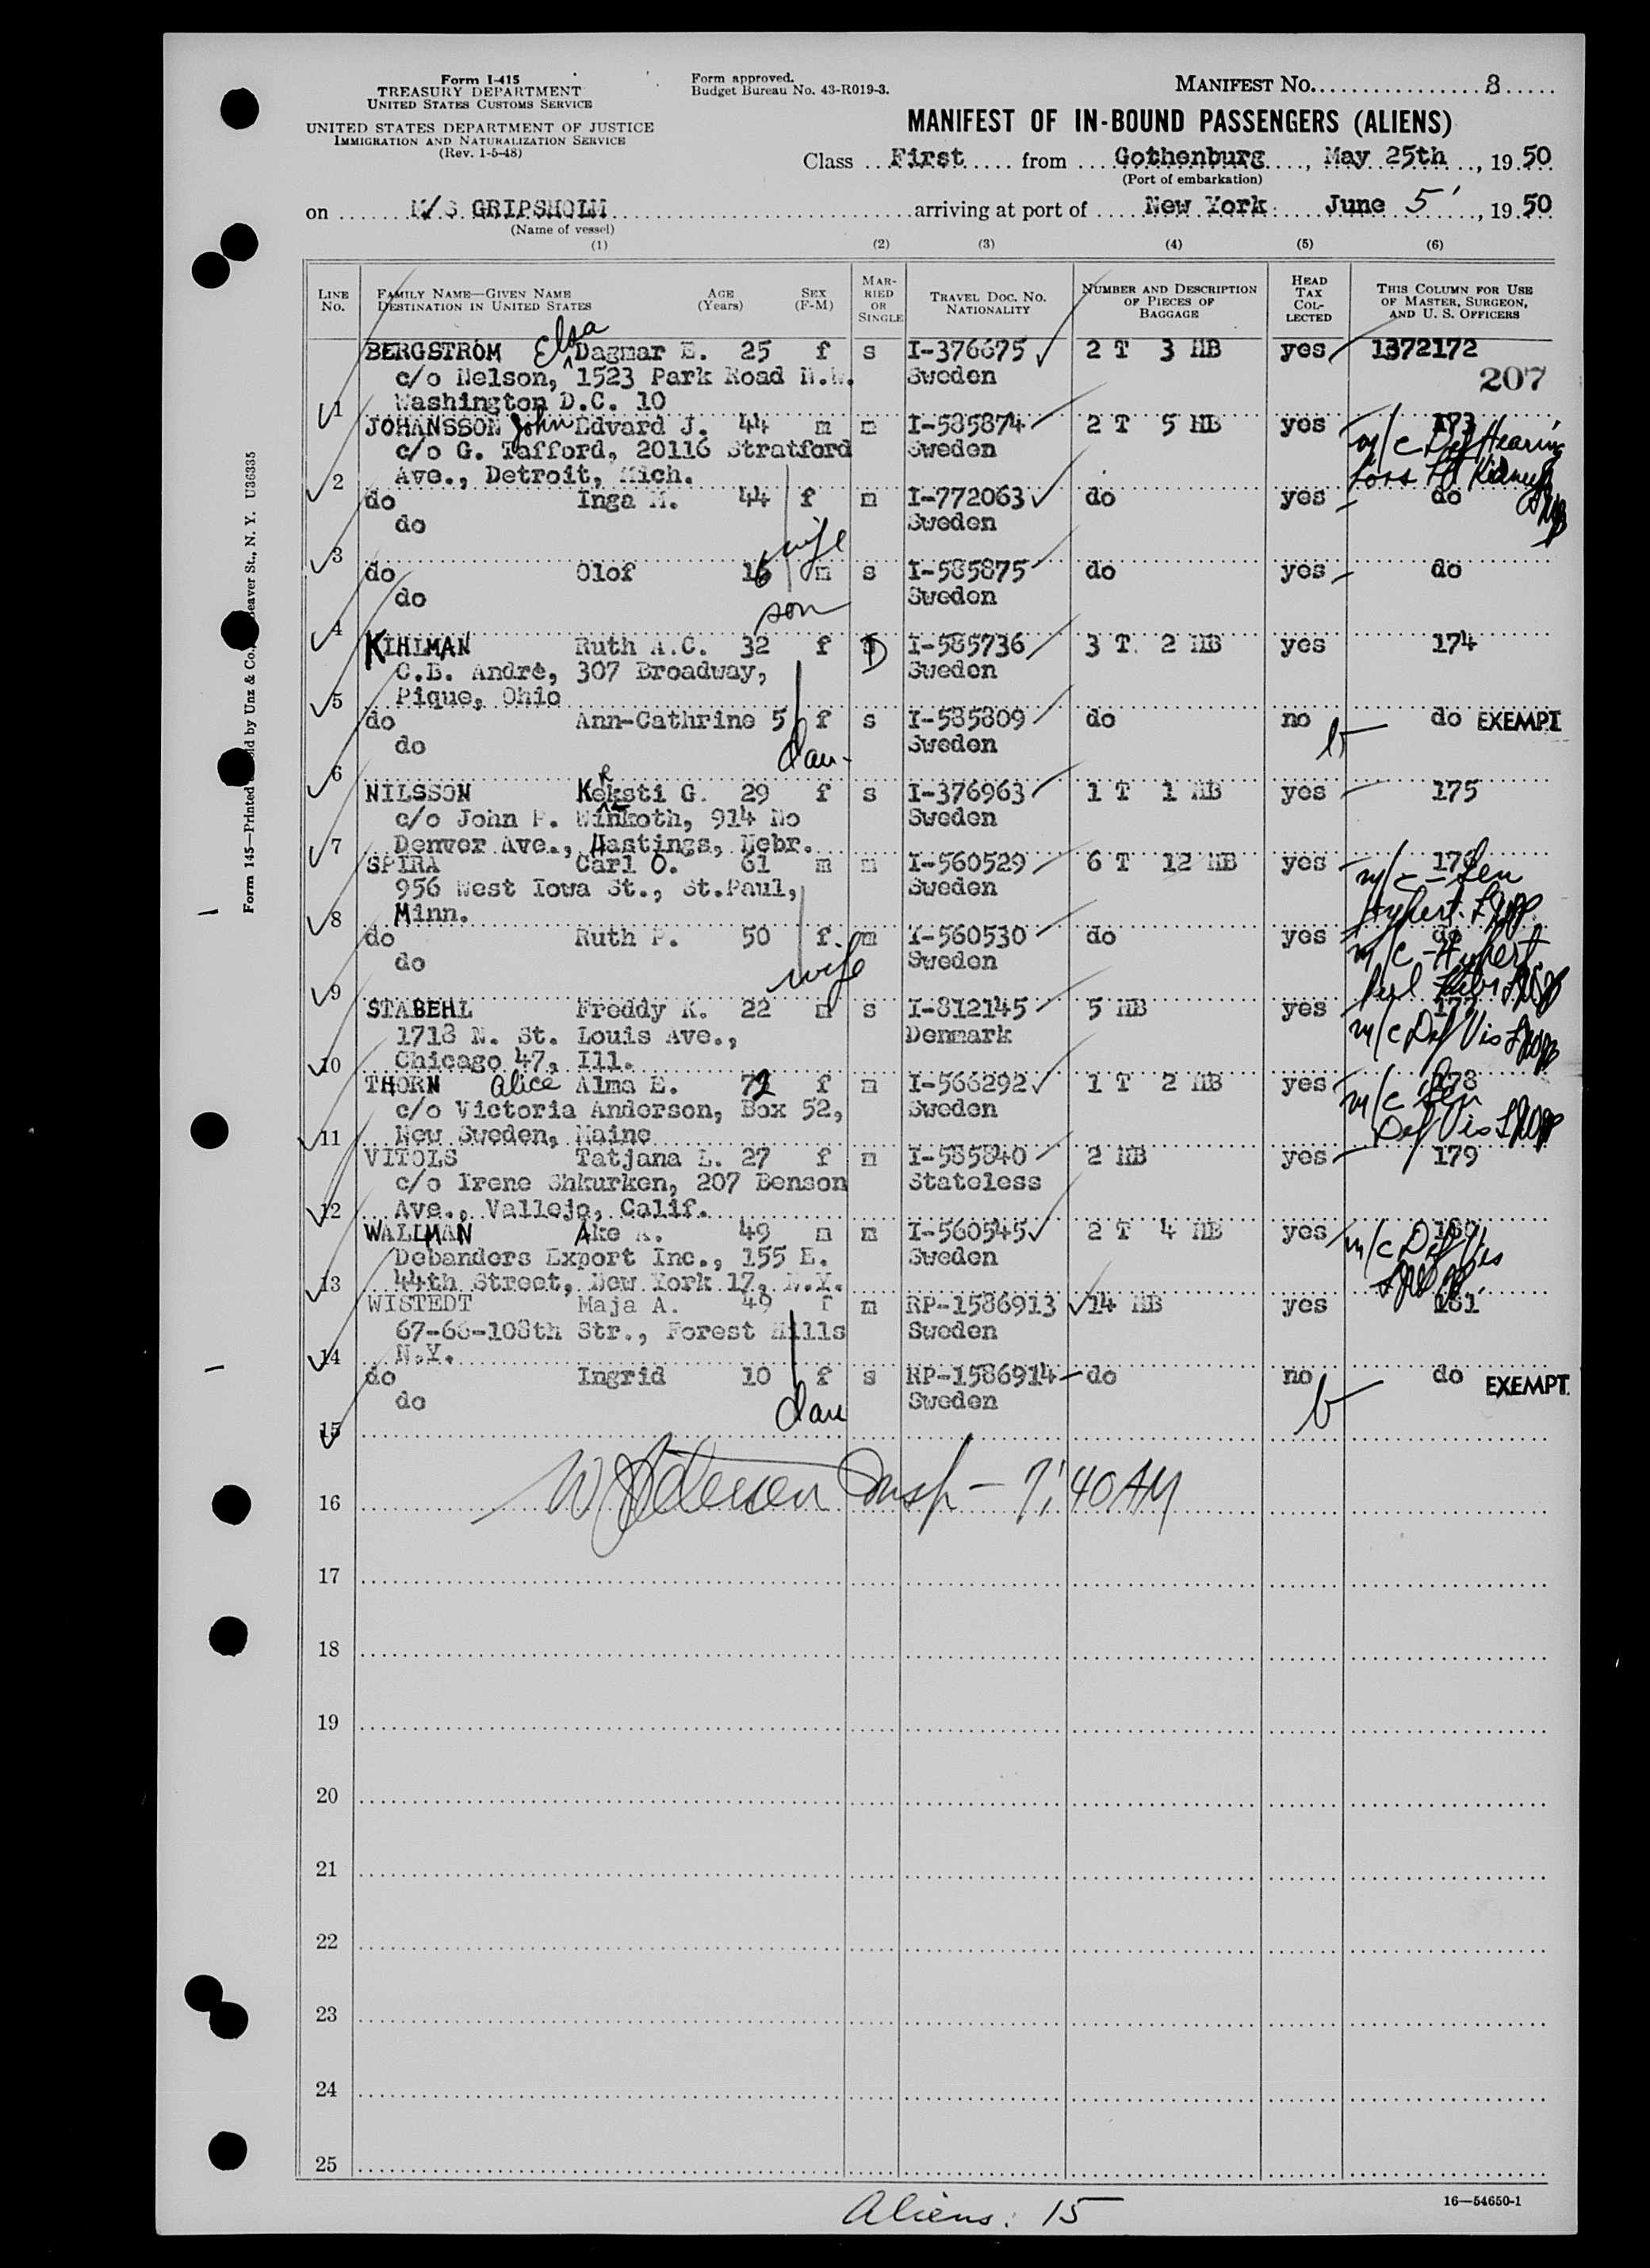 Form I-415
TREASURY DEPARTMENT
UNITED STATES CUSTOMS SERVICE
UNITED STATES DEPARTMENT OF JUSTICE
IMMIGRATION AND NATURALIZATION SERVICE
(Rev. 1-5-48)
Form approved.
Budget Bureau No. 43-R019-3.
MANIFEST No. 8
MANIFEST OF IN-BOUND PASSENGERS (ALIENS)
Class First from Gothenburg, May 25th, 1950
(Port of embarkation)
on M/S GRIPSHOLM arriving at port of New York June 5, 1950
(Name of vessel)
(1) (2) (3) (4) (5) (6)
LINE No. FAMILY NAME—GIVEN NAME DESTINATION IN UNITED STATES AGE (Years) SEX (F-M) MARRIED OR SINGLE TRAVEL DOC. NO. NATIONALITY NUMBER AND DESCRIPTION OF PIECES OF BAGGAGE HEAD TAX COLLECTED THIS COLUMN FOR USE OF MASTER, SURGEON, AND U. S. OFFICERS
BERGSTRÖM Elsa Dagmar E. 25 f s I-376675 2 T 3 HB yes 1372172
c/o Nelson, 1523 Park Road N.W. Sweden 207
1 Washington D.C. 10
JOHANSSON John Edvard J. 44 m m I-585874 2 T 5 HB yes 173
c/o G. Tafford, 20116 Stratford Sweden m/c Def Hearing
2 Ave., Detroit, Mich. Loss Kidney
do Inga M. 44 f m I-772063 do yes do
do Sweden
wife
3
do Olof 16 m s I-585875 do yes do
do Sweden
son
4
KIHLMAN Ruth A.C. 32 f D I-585736 3 T 2 HB yes 174
C.B. André, 307 Broadway, Sweden
5 Pique, Ohio
do Ann-Cathrine 5 f s I-585809 do no do EXEMPT
do Sweden
dau-
6
NILSSON Kersti G. 29 f s I-376963 1 T 1 HB yes 175
c/o John P. Winkoth, 914 No Sweden
7 Denver Ave., Hastings, Nebr.
SPIRA Carl O. 61 m m I-560529 6 T 12 HB yes 176
956 West Iowa St., St.Paul, Sweden m/c - Sen
8 Minn. Hypert.
do Ruth P. 50 f m I-560530 do yes do
do Sweden m/c - Hypert
wife
9
STABEHL Freddy K. 22 m s I-812145 5 HB yes 177
1718 N. St. Louis Ave., Denmark m/c Def Vis
10 Chicago 47, Ill.
THORN Alice Alma E. 72 f m I-566292 1 T 2 HB yes 178
c/o Victoria Anderson, Box 52, Sweden m/c Sen
11 New Sweden, Maine Def Vis
VITOLS Tatjana L. 27 f m I-585840 2 HB yes 179
c/o Irene Shkurken, 207 Benson Stateless
12 Ave., Vallejo, Calif.
WALLMAN Åke A. 49 m m I-560545 2 T 4 HB yes 180
Debanders Export Inc., 155 E. Sweden m/c Def Vis
13 44th Street, New York 17, N.Y.
WISTEDT Maja A. 49 f m RP-1586913 14 HB yes 181
67-66-108th Str., Forest Hills Sweden
14 N.Y.
do Ingrid 10 f s RP-1586914 do no do EXEMPT
do Sweden
dau
15
16 Insp - 7:40 AM
17
18
19
20
21
22
23
24
25
Aliens: 15
16—54650-1
Form 145—Printed by Unz & Co. Beaver St., N. Y. U36335